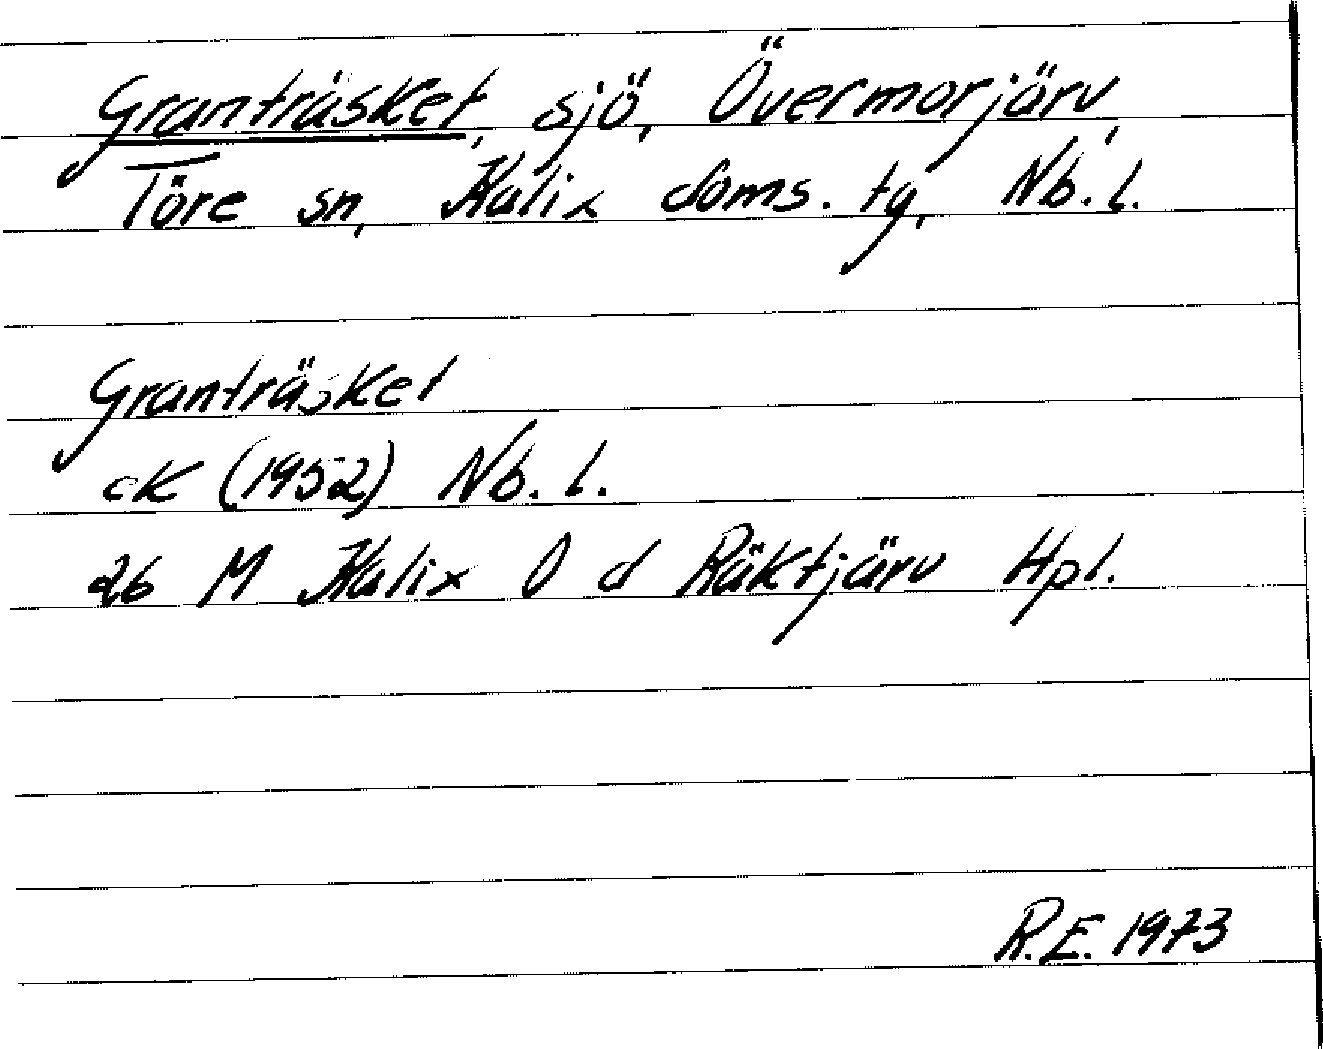 Granträsket, sjö, Övermorjärv,
Töre sn, Kalix doms. tg, Nb. l.
Granträsket
ek (1952) Nb. l.
26 M Kalix O d Räktjärv Hpl.
R.E. 1973